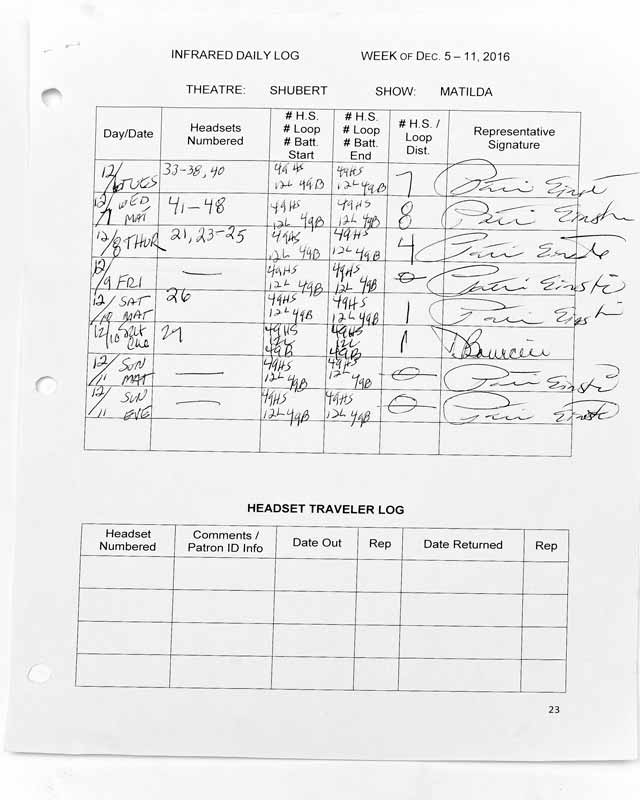 INFRARED DAILY LOG WEEK OF DEC. 5 – 11, 2016
THEATRE: SHUBERT SHOW: MATILDA
Day/Date Headsets Numbered # H.S. # Loop # Batt. Start # H.S. # Loop # Batt. End # H.S. / Loop Dist. Representative Signature
12/6 TUES 33-38, 40 49HS 12L 49B 49HS 12L 49B 7 Patti Einst
12/7 WED MAT 41-48 49HS 12L 49B 49HS 12L 49B 8 Patti Einstein
12/8 THUR 21, 23-25 49HS 12L 49B 49HS 12L 49B 4 Patti
12/9 FRI — 49HS 12L 49B 49HS 12L 49B 0 Patti Einstein
12/10 SAT MAT 26 49HS 12L 49B 49HS 12L 49B 1 Patti Einstein
12/10 27 49HS 12L 49B 49HS 12L 49B 1
12/11 SUN MAT — 49HS 12L 49B 49HS 12L 49B 0 Patti Einstein
12/11 SUN EVE — 49HS 12L 49B 49HS 12L 49B 0 Patti Einstein
HEADSET TRAVELER LOG
Headset Numbered Comments / Patron ID Info Date Out Rep Date Returned Rep
23